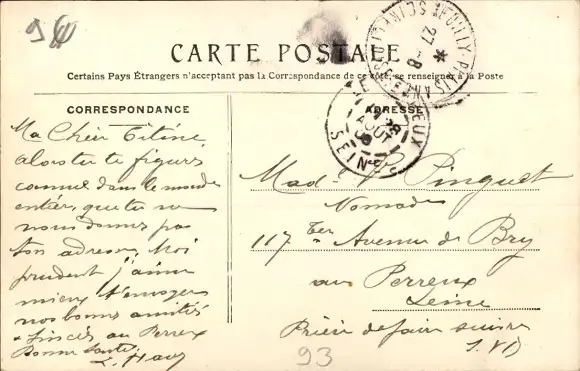 CARTE POSTALE
Certains Pays Étrangers n'acceptant pas la Correspondance de ce côté, se renseigner à la Poste
CORRESPONDANCE
Ma Chère Titine,
alors tu te figures
connue dans le monde
entier, que tu ne
nous donnes pas
ton adresse, Moi
prudent j'aime
mieux t'envoyer
nos bonnes amitiés
sincères au Perreux
Bonne santé.
ADRESSE
Mad. Pinguet
Nomade
117 ter Avenue de Bry
au Perreux
Seine
Prière de faire suivre
S.V.P
NEUILLY-PLAISANCE
27 -8
AOUT
SEINE
93